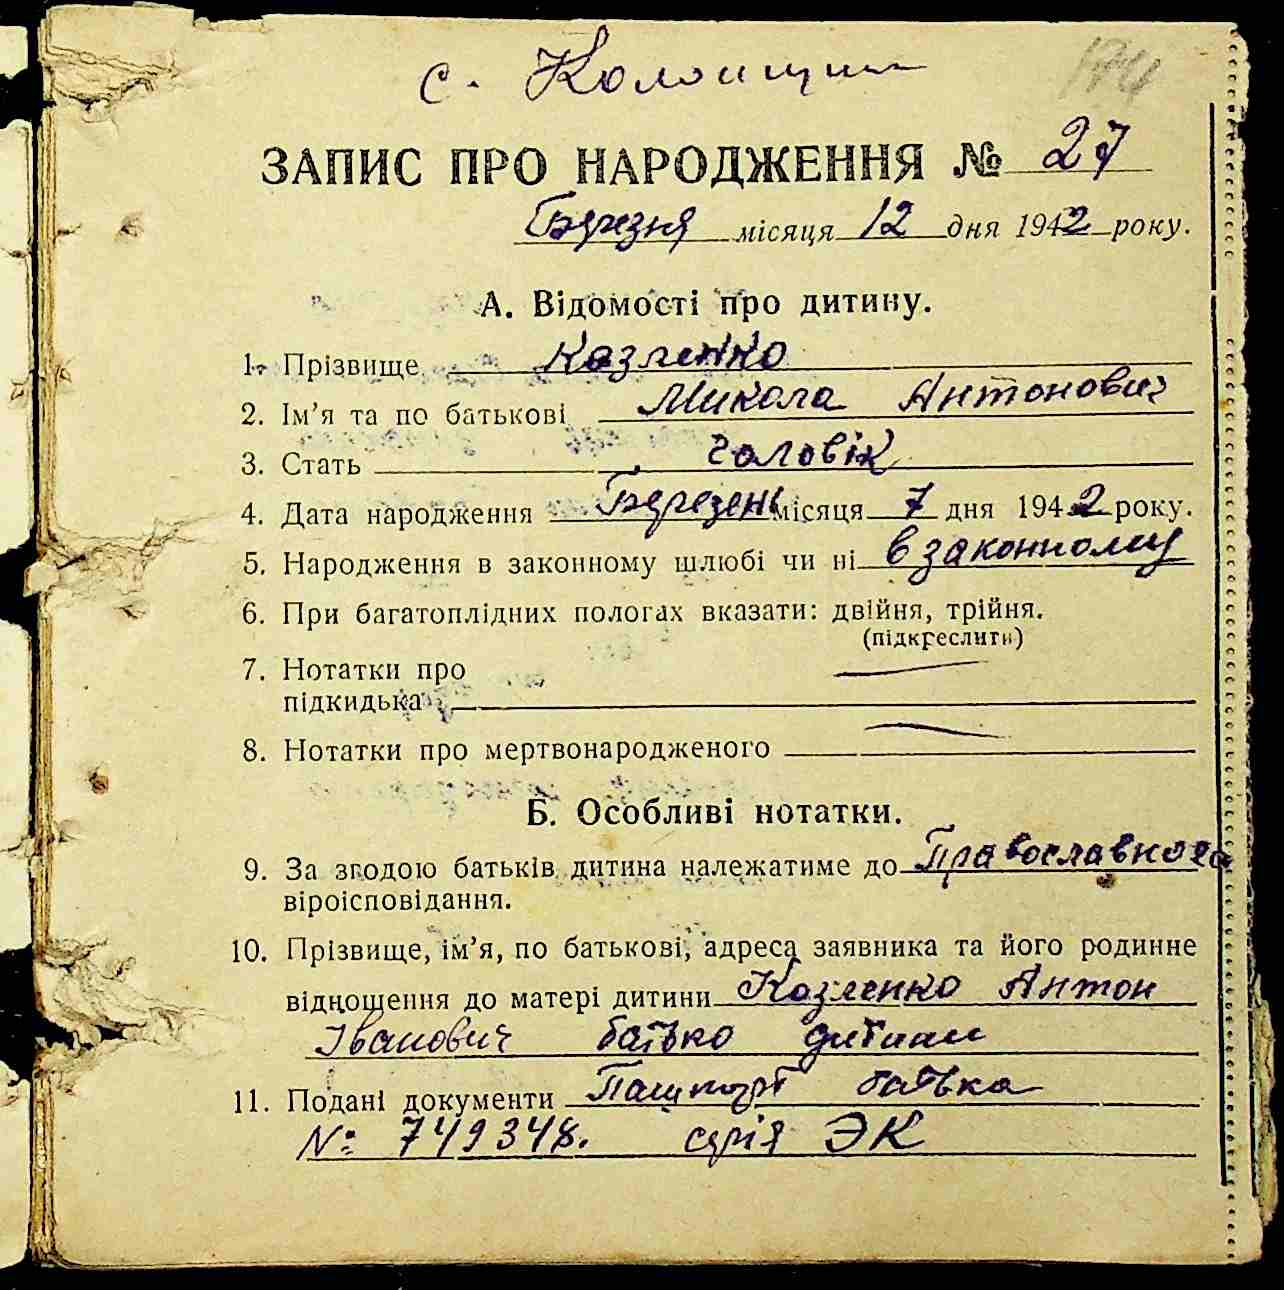 с. Колонщин
174
ЗАПИС ПРО НАРОДЖЕННЯ № 27
Березня місяця 12 дня 1942 року.
А. Відомості про дитину.
1. Прізвище Козленко
2. Ім'я та по батькові Микола Антонович
3. Стать чоловік
4. Дата народження Березень місяця 7 дня 1942 року.
5. Народження в законному шлюбі чи ні в законному
6. При багатоплідних пологах вказати: двійня, трійня.
(підкреслити)
7. Нотатки про
підкидька —
8. Нотатки про мертвонародженого —
Б. Особливі нотатки.
9. За згодою батьків дитина належатиме до Православного
віроісповідання.
10. Прізвище, ім'я, по батькові, адреса заявника та його родинне
відношення до матері дитини Козленко Антон
Іванович батько дитини
11. Подані документи Пашпорт батька
№ 749348. серія ЭК